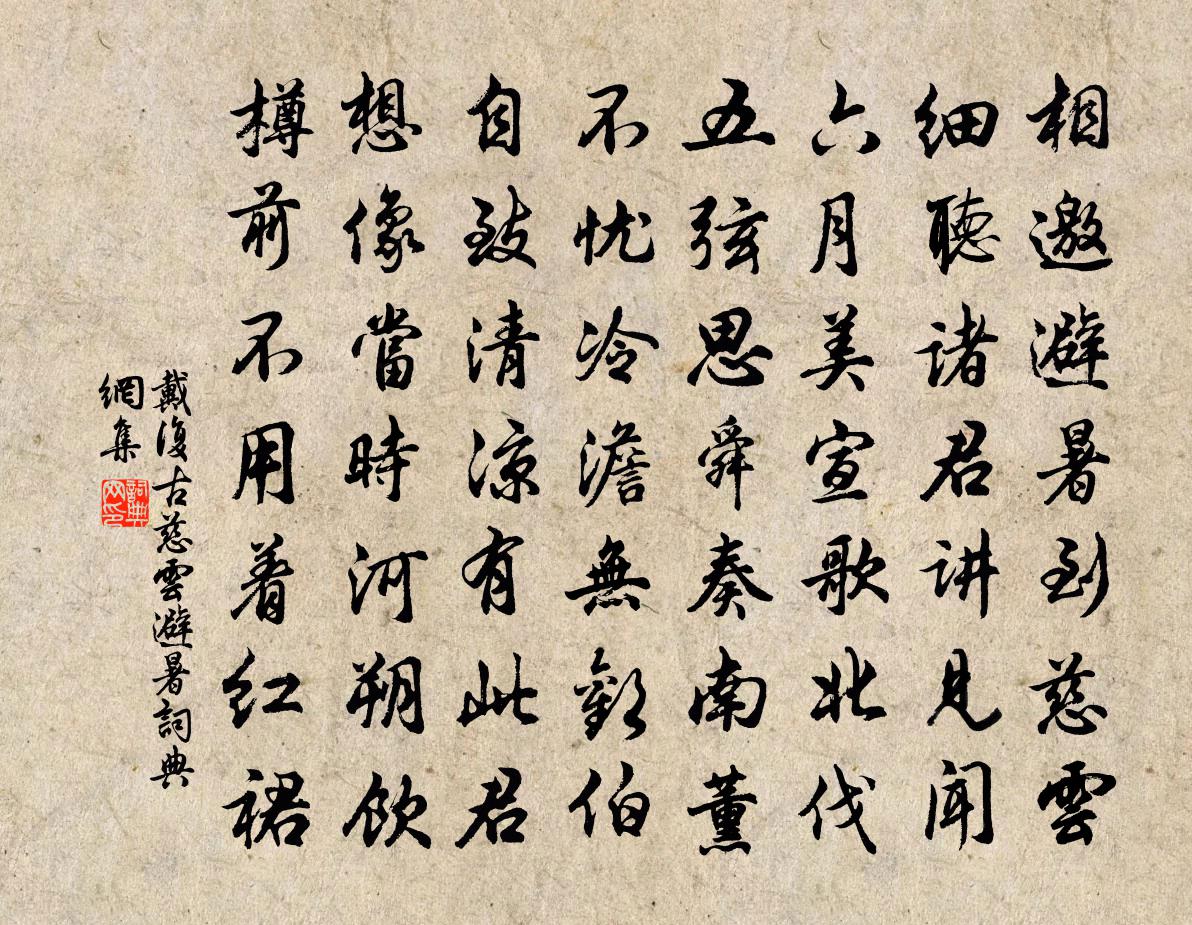 相邀避暑到慈雲
细聽諸君讲見聞
六月美宣歌北伐
五弦思舜奏南薰
不忧冷澹無歡伯
自致清凉有此君
想像當時河朔飲
樽前不用着红裙
戴復古慈雲避暑詞典
網集
詞典
网印